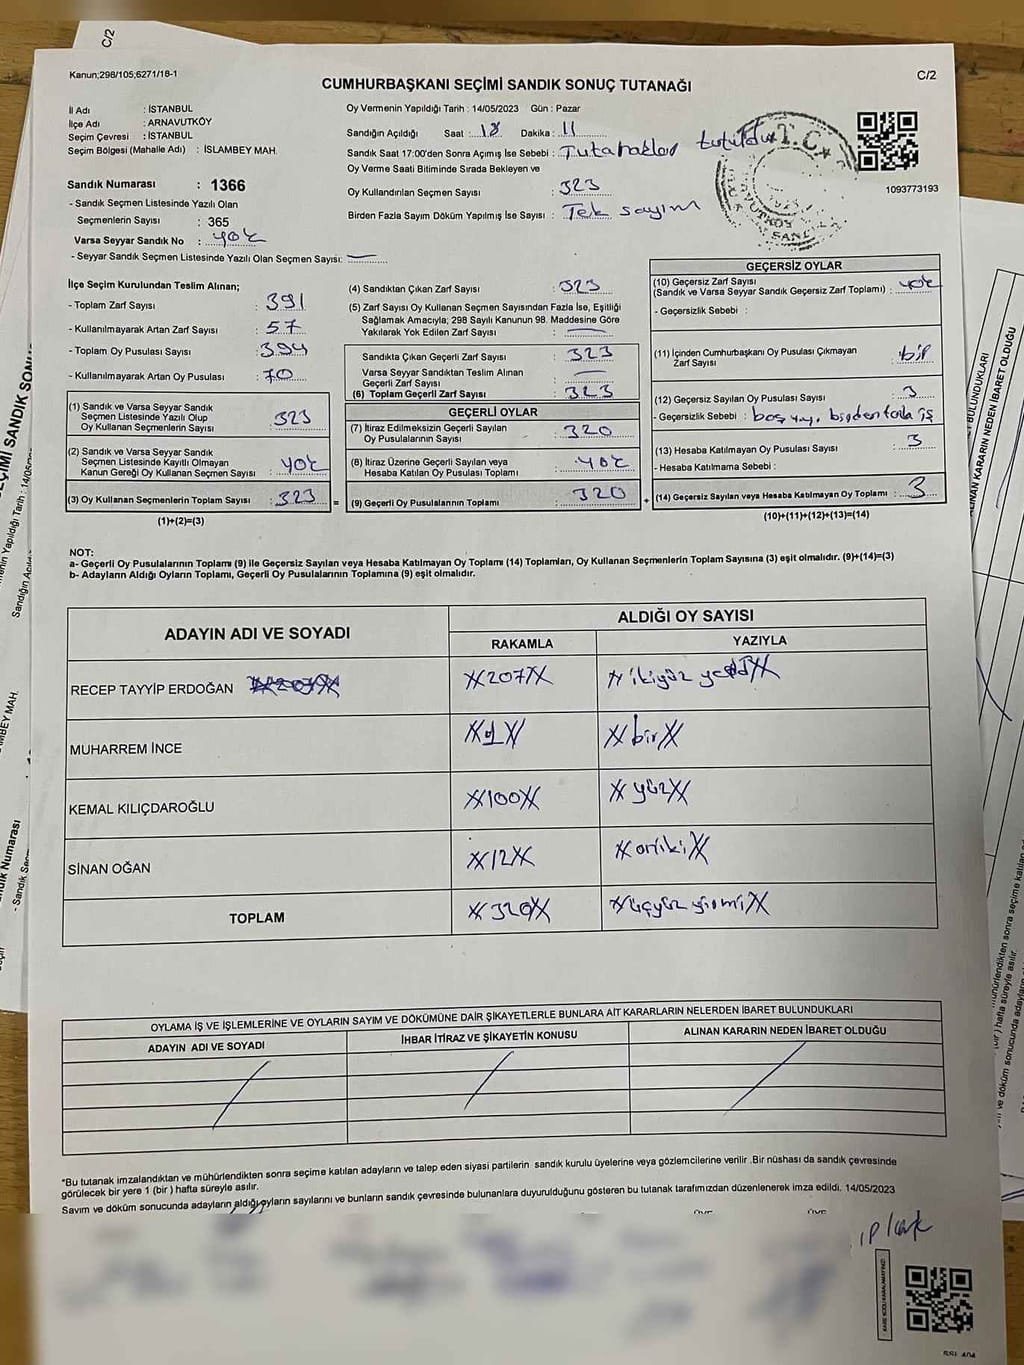 C/2
Kanun;298/105;6271/18-1
C/2
CUMHURBAŞKANI SEÇİMİ SANDIK SONUÇ TUTANAĞI
İl Adı : İSTANBUL
İlçe Adı : ARNAVUTKÖY
Seçim Çevresi : İSTANBUL
Seçim Bölgesi (Mahalle Adı) : İSLAMBEY MAH.
Oy Vermenin Yapıldığı Tarih : 14/05/2023 Gün : Pazar
Sandığın Açıldığı Saat : 18 Dakika : 11
Sandık Saat 17:00'den Sonra Açımış İse Sebebi : Tutanaklar tutuldu
Oy Verme Saati Bitiminde Sırada Bekleyen ve
Oy Kullandırılan Seçmen Sayısı : 323
Birden Fazla Sayım Döküm Yapılmış İse Sayısı : Tek sayım
T.C.
1093773193
Sandık Numarası : 1366
- Sandık Seçmen Listesinde Yazılı Olan
Seçmenlerin Sayısı : 365
Varsa Seyyar Sandık No : yok
- Seyyar Sandık Seçmen Listesinde Yazılı Olan Seçmen Sayısı: —
İlçe Seçim Kurulundan Teslim Alınan;
- Toplam Zarf Sayısı : 391
- Kullanılmayarak Artan Zarf Sayısı : 57
- Toplam Oy Pusulası Sayısı : 394
- Kullanılmayarak Artan Oy Pusulası : 70
(1) Sandık ve Varsa Seyyar Sandık
Seçmen Listesinde Yazılı Olup
Oy Kullanan Seçmenlerin Sayısı : 323
(2) Sandık ve Varsa Seyyar Sandık
Seçmen Listesinde Kayıtlı Olmayan
Kanun Gereği Oy Kullanan Seçmen Sayısı : yok
(3) Oy Kullanan Seçmenlerin Toplam Sayısı : 323 =
(1)+(2)=(3)
(4) Sandıktan Çıkan Zarf Sayısı : 323
(5) Zarf Sayısı Oy Kullanan Seçmen Sayısından Fazla İse, Eşitliği
Sağlamak Amacıyla; 298 Sayılı Kanunun 98. Maddesine Göre
Yakılarak Yok Edilen Zarf Sayısı : —
Sandıkta Çıkan Geçerli Zarf Sayısı : 323
Varsa Seyyar Sandıktan Teslim Alınan
Geçerli Zarf Sayısı : —
(6) Toplam Geçerli Zarf Sayısı : 323
GEÇERLİ OYLAR
(7) İtiraz Edilmeksizin Geçerli Sayılan
Oy Pusulalarının Sayısı : 320
(8) İtiraz Üzerine Geçerli Sayılan veya
Hesaba Katılan Oy Pusulası Toplamı : yok
(9) Geçerli Oy Pusulalarının Toplamı : 320 +
GEÇERSİZ OYLAR
(10) Geçersiz Zarf Sayısı
(Sandık ve Varsa Seyyar Sandık Geçersiz Zarf Toplamı) : yok
- Geçersizlik Sebebi :
(11) İçinden Cumhurbaşkanı Oy Pusulası Çıkmayan
Zarf Sayısı : bir
(12) Geçersiz Sayılan Oy Pusulası Sayısı : 3
- Geçersizlik Sebebi : boş
(13) Hesaba Katılmayan Oy Pusulası Sayısı : 3
- Hesaba Katılmama Sebebi :
(14) Geçersiz Sayılan veya Hesaba Katılmayan Oy Toplamı : 3
(10)+(11)+(12)+(13)=(14)
NOT:
a- Geçerli Oy Pusulalarının Toplamı (9) ile Geçersiz Sayılan veya Hesaba Katılmayan Oy Toplamı (14) Toplamları, Oy Kullanan Seçmenlerin Toplam Sayısına (3) eşit olmalıdır. (9)+(14)=(3)
b- Adayların Aldığı Oyların Toplamı, Geçerli Oy Pusulalarının Toplamına (9) eşit olmalıdır.
ADAYIN ADI VE SOYADI
ALDIĞI OY SAYISI
RAKAMLA YAZIYLA
RECEP TAYYİP ERDOĞAN 207 ikiyüz yedi
MUHARREM İNCE 1 bir
KEMAL KILIÇDAROĞLU 100 yüz
SİNAN OĞAN 12 oniki
TOPLAM 320 üçyüz yirmi
OYLAMA İŞ VE İŞLEMLERİNE VE OYLARIN SAYIM VE DÖKÜMÜNE DAİR ŞİKAYETLERLE BUNLARA AİT KARARLARIN NELERDEN İBARET BULUNDUKLARI
ADAYIN ADI VE SOYADI İHBAR İTİRAZ VE ŞİKAYETİN KONUSU ALINAN KARARIN NEDEN İBARET OLDUĞU
*Bu tutanak imzalandıktan ve mühürlendikten sonra seçime katılan adayların ve talep eden siyasi partilerin sandık kurulu üyelerine veya gözlemcilerine verilir .Bir nüshası da sandık çevresinde
görülecek bir yere 1 (bir ) hafta süreyle asılır.
Sayım ve döküm sonucunda adayların aldığı oyların sayılarını ve bunların sandık çevresinde bulunanlara duyurulduğunu gösteren bu tutanak tarafımızdan düzenlenerek imza edildi. 14/05/2023